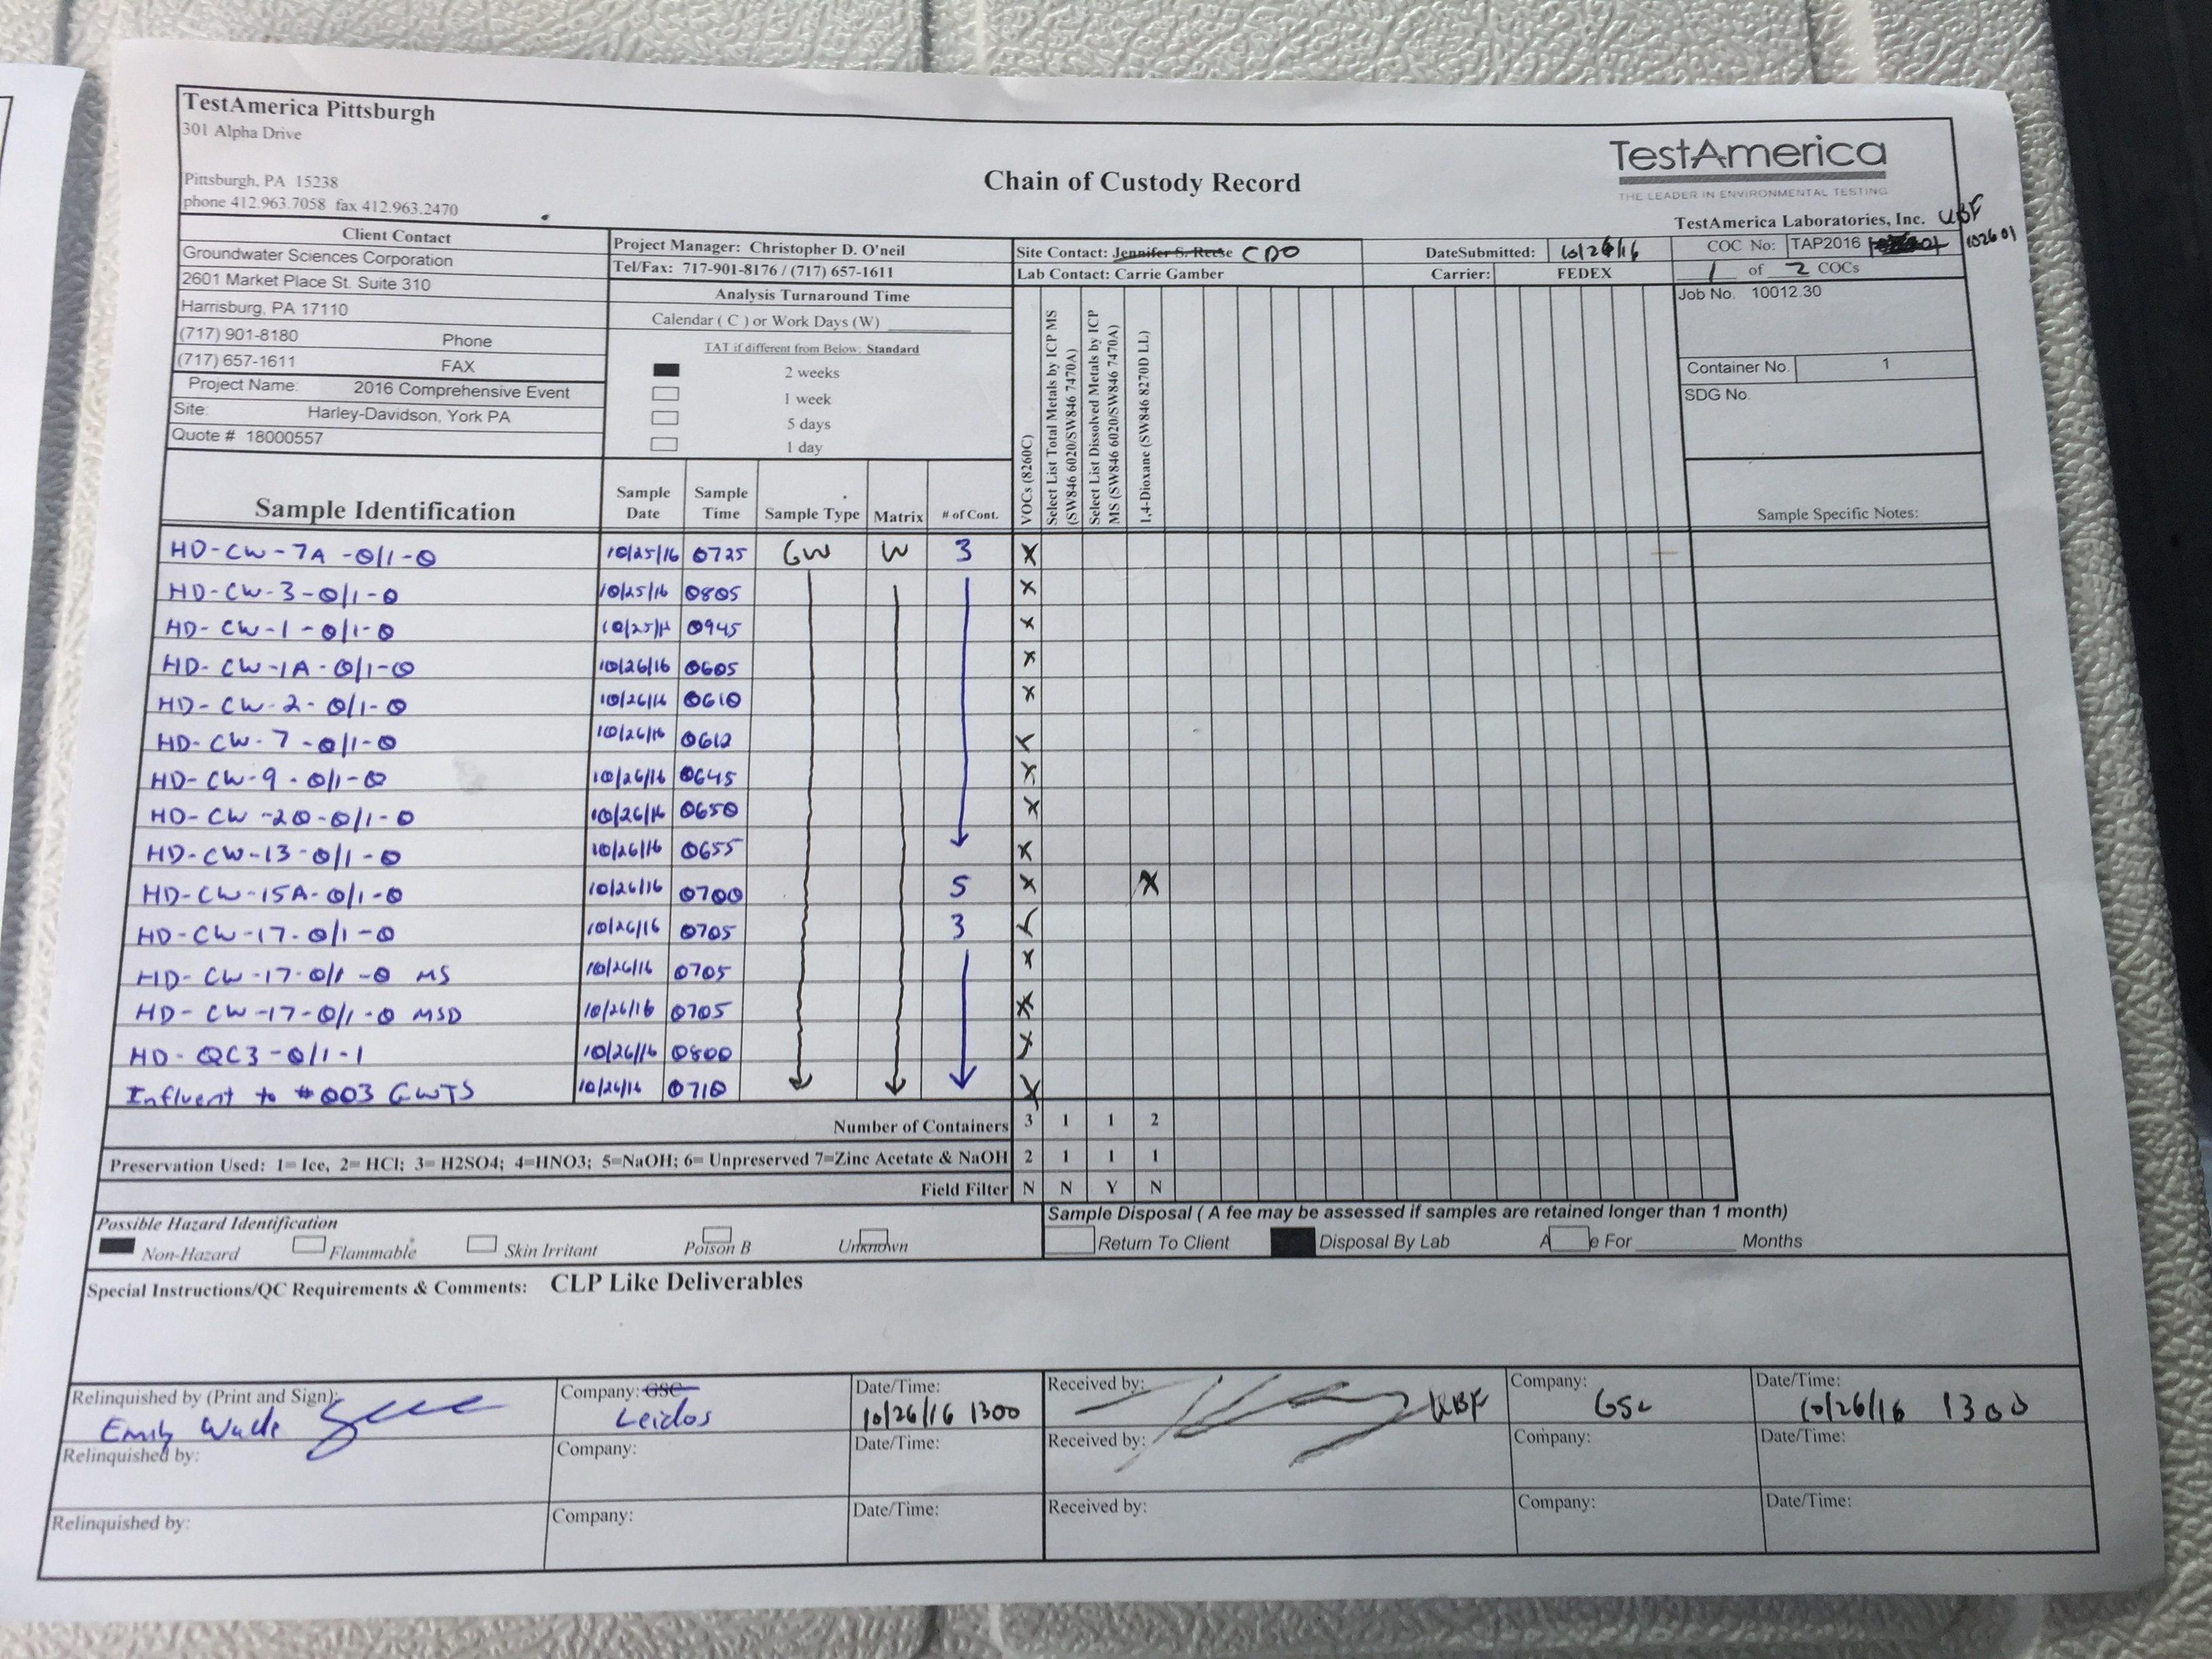 TestAmerica Pittsburgh
301 Alpha Drive
Pittsburgh, PA 15238
phone 412.963.7058 fax 412.963.2470
Chain of Custody Record
TestAmerica
THE LEADER IN ENVIRONMENTAL TESTING
TestAmerica Laboratories, Inc. KBF
Client Contact
Groundwater Sciences Corporation
2601 Market Place St. Suite 310
Harrisburg, PA 17110
(717) 901-8180 Phone
(717) 657-1611 FAX
Project Name: 2016 Comprehensive Event
Site: Harley-Davidson, York PA
Quote # 18000557
Project Manager: Christopher D. O'neil
Tel/Fax: 717-901-8176 / (717) 657-1611
Analysis Turnaround Time
Calendar ( C ) or Work Days (W)
TAT if different from Below: Standard
2 weeks
1 week
5 days
1 day
Site Contact: Jennifer S. Reese CDO
Lab Contact: Carrie Gamber
DateSubmitted: 10/26/16
Carrier: FEDEX
COC No: TAP2016 102601
1 of 2 COCs
Job No. 10012.30
Container No. 1
SDG No.
VOCs (8260C)
Select List Total Metals by ICP MS
(SW846 6020/SW846 7470A)
Select List Dissolved Metals by ICP
MS (SW846 6020/SW846 7470A)
1,4-Dioxane (SW846 8270D LL)
Sample Identification Sample Date Sample Time Sample Type Matrix # of Cont. Sample Specific Notes:
HD-CW-7A-0/1-0 10/25/16 0725 GW W 3 X
HD-CW-3-0/1-0 10/25/16 0805 X
HD-CW-1-0/1-0 10/25/16 0945 X
HD-CW-1A-0/1-0 10/26/16 0605 X
HD-CW-2-0/1-0 10/26/16 0610 X
HD-CW-7-0/1-0 10/26/16 0612 X
HD-CW-9-0/1-0 10/26/16 0645 X
HD-CW-20-0/1-0 10/26/16 0650 X
HD-CW-13-0/1-0 10/26/16 0655 X
HD-CW-15A-0/1-0 10/26/16 0700 5 X X
HD-CW-17-0/1-0 10/26/16 0705 3 X
HD-CW-17-0/1-0 MS 10/26/16 0705 X
HD-CW-17-0/1-0 MSD 10/26/16 0705 X
HD-QC3-0/1-1 10/26/16 0800 X
Influent to #003 GWTS 10/26/16 0710 X
Number of Containers 3 1 1 2
Preservation Used: 1= Ice, 2= HCl; 3= H2SO4; 4=HNO3; 5=NaOH; 6= Unpreserved 7=Zinc Acetate & NaOH 2 1 1 1
Field Filter N N Y N
Possible Hazard Identification
Non-Hazard Flammable Skin Irritant Poison B Unknown
Sample Disposal ( A fee may be assessed if samples are retained longer than 1 month)
Return To Client Disposal By Lab A e For Months
Special Instructions/QC Requirements & Comments: CLP Like Deliverables
Relinquished by (Print and Sign): Emily Wade
Company: GSC Leidos
Date/Time: 10/26/16 1300
Received by: KBF
Company: GSC
Date/Time: 10/26/16 1300
Relinquished by: Company: Date/Time: Received by: Company: Date/Time:
Relinquished by: Company: Date/Time: Received by: Company: Date/Time: